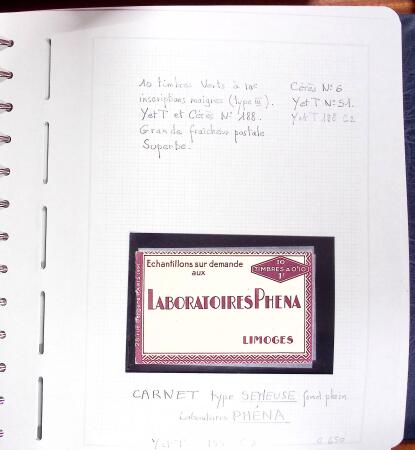 10 timbres Verts à 10c
inscriptions maigres (type III).
Y et T et Cérès N° 188.
Grande fraîcheur postale
Superbe.
Cérès N° 6
Y et T N° 51.
Y et T 188 C2
Echantillons sur demande
aux
10
TIMBRES A 0'10
1F
LABORATOIRES PHENA
LIMOGES
CARNET type SEMEUSE fond plein
Laboratoires PHÉNA
Y et T C2